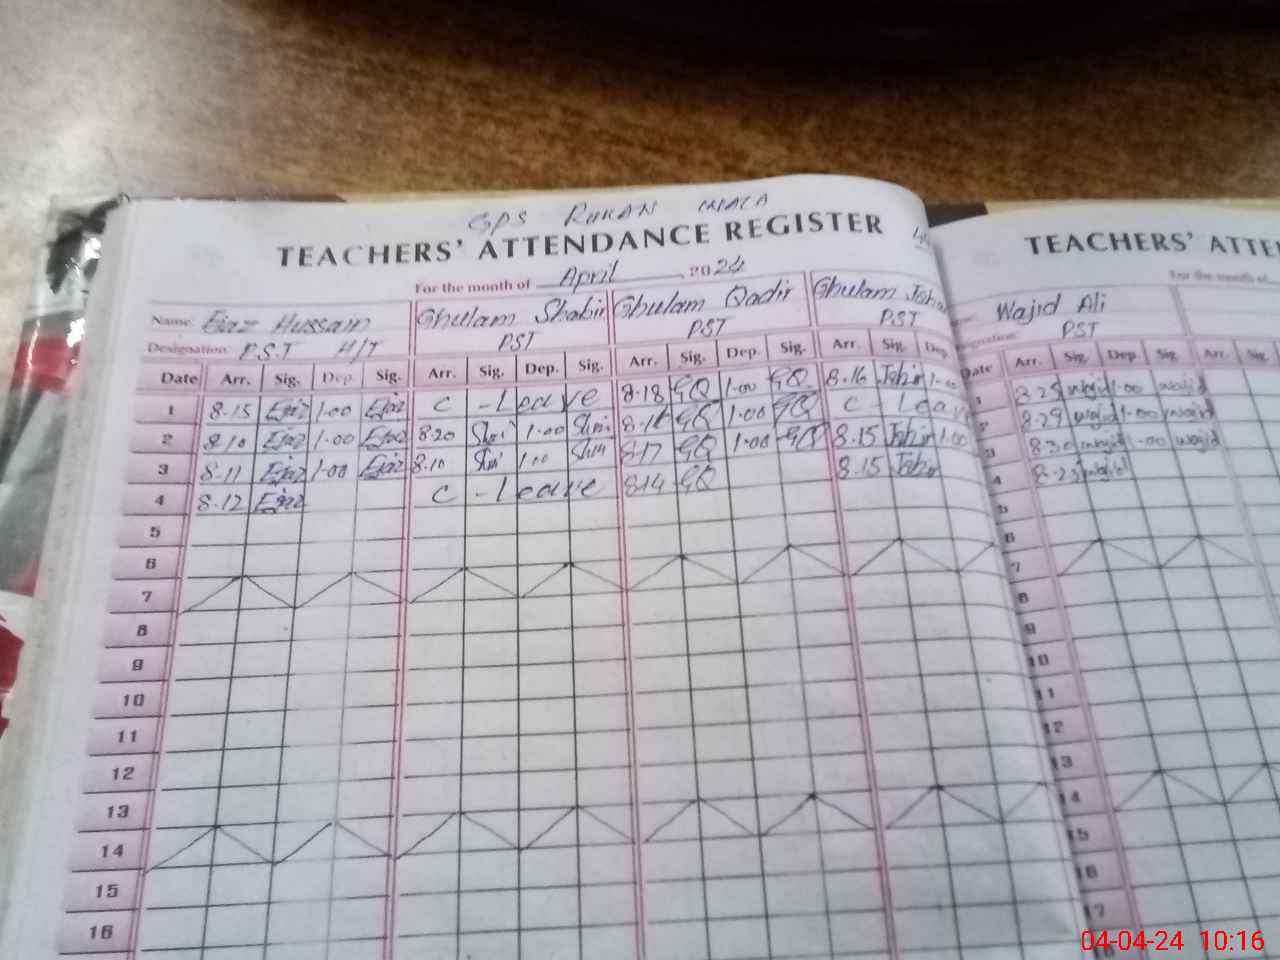 GPS RUKAN WALA
TEACHERS' ATTENDANCE REGISTER
TEACHERS' ATTE
For the month of April 2024
For the month of
Name: Ejaz Hussain Ghulam Shabir Ghulam Qadir Ghulam Wajid Ali
Designation: P.S.T H/T PST PST PST PST
Date Arr. Sig. Dep. Sig. Arr. Sig. Dep. Sig. Arr. Sig. Dep. Sig. Arr. Sig. Dep. Date Arr. Sig. Dep. Sig. Arr. Sig.
1 8-15 Ejaz 1-00 Ejaz C - Leave 8-18 GQ 1-00 GQ 8-16 1-00 1 8-25 wajid 1-00 wajid
2 8-10 Ejaz 1-00 Ejaz 8-20 1-00 GQ 1-00 GQ C Leave 2 8-29 wajid 1-00 wajid
3 8-11 Ejaz 1-00 Ejaz 8-10 1-00 8-17 GQ 1-00 GQ 8-15 1-00 3 8-30 wajid 1-00 wajid
4 8-12 Ejaz C - Leave 8-14 GQ 8-15 4 wajid
5 5
6 6
7 7
8 8
9 9
10 10
11 11
12 12
13 13
14 14
15 15
16 16
17
04-04-24 10:16